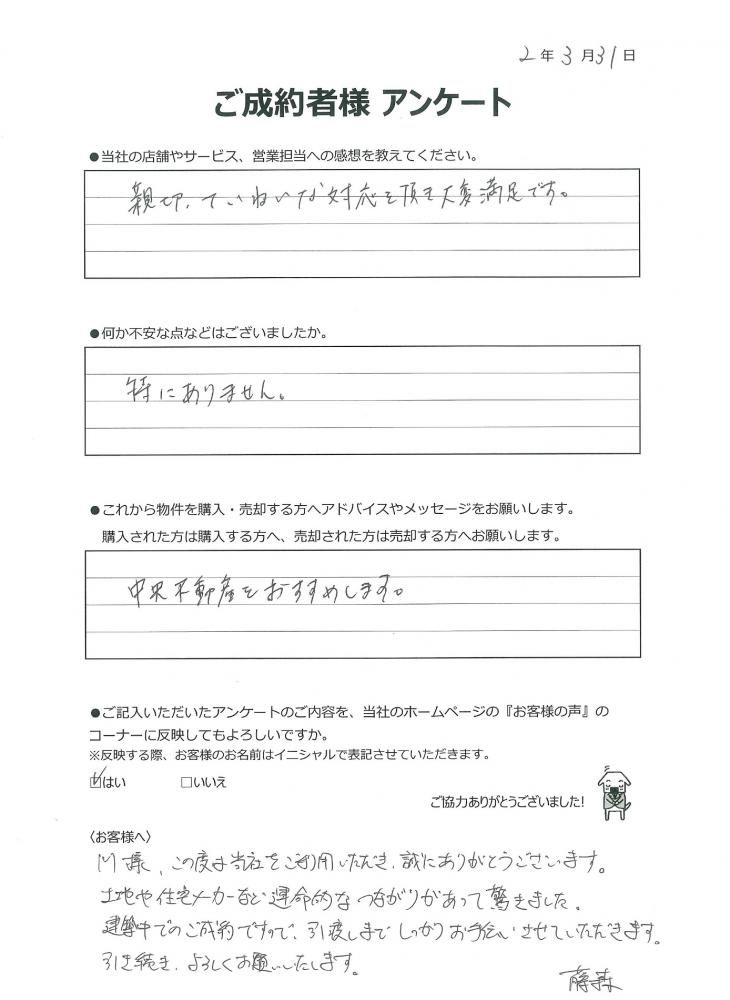 2年3月31日
ご成約者様 アンケート
●当社の店舗やサービス、営業担当への感想を教えてください。
親切、ていねいな対応を頂き大変満足です。
●何か不安な点などはございましたか。
特にありません。
●これから物件を購入・売却する方へアドバイスやメッセージをお願いします。
購入された方は購入する方へ、売却された方は売却する方へお願いします。
中央不動産をおすすめします。
●ご記入いただいたアンケートのご内容を、当社のホームページの『お客様の声』の
コーナーに反映してもよろしいですか。
※反映する際、お客様のお名前はイニシャルで表記させていただきます。
☑はい □いいえ
ご協力ありがとうございました!
〈お客様へ〉
様、この度は当社をご利用いただき、誠にありがとうございます。
土地や住宅メーカーなど運命的なつながりがあって驚きました。
建築中でのご成約ですので、引渡しまでしっかりお手伝いさせていただきます。
引き続き、よろしくお願いいたします。
藤森